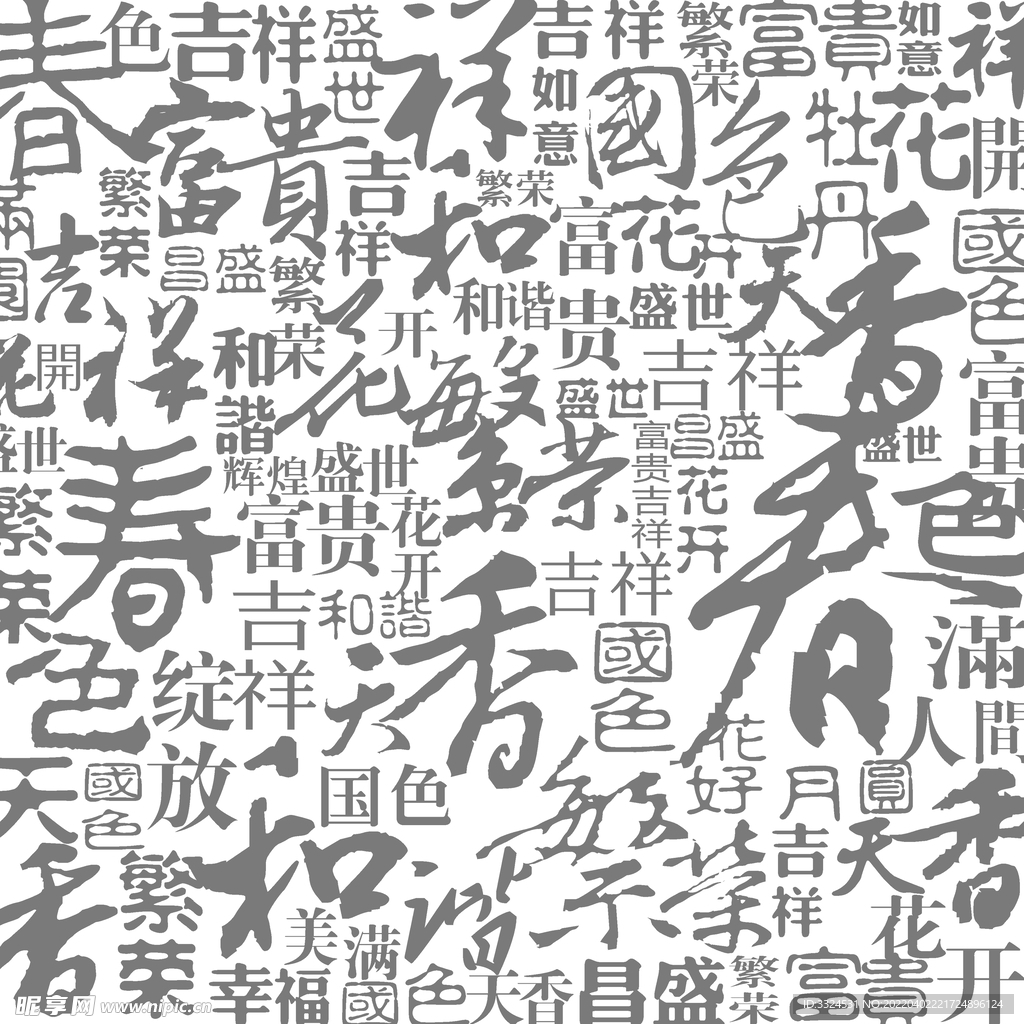 春
色
吉祥
盛世
祥
吉祥
繁荣
富貴
如意
祥
富貴
吉祥
如意
國色
牡丹
花開
繁荣
繁荣
富貴
花开
滿園
吉祥
昌盛
繁荣
和
和谐
盛世
天香
國色
花開
和諧
花开
吉祥
富贵
盛世
繁荣
昌盛
富贵吉祥
花开
盛世
富貴
盛世
春
辉煌盛世
富贵
花开
繁荣
春
色
吉祥
和諧
吉祥
國色
天香
滿
人間
色
绽放
吉祥
天香
國色
国色
花好
月圓
和諧
繁荣
吉祥
天香
繁荣
美满
花开
幸福
國色天香
昌盛
繁荣
富貴
昵享网 www.nipic.cn
ID:3324531 NO:20220402221724896124